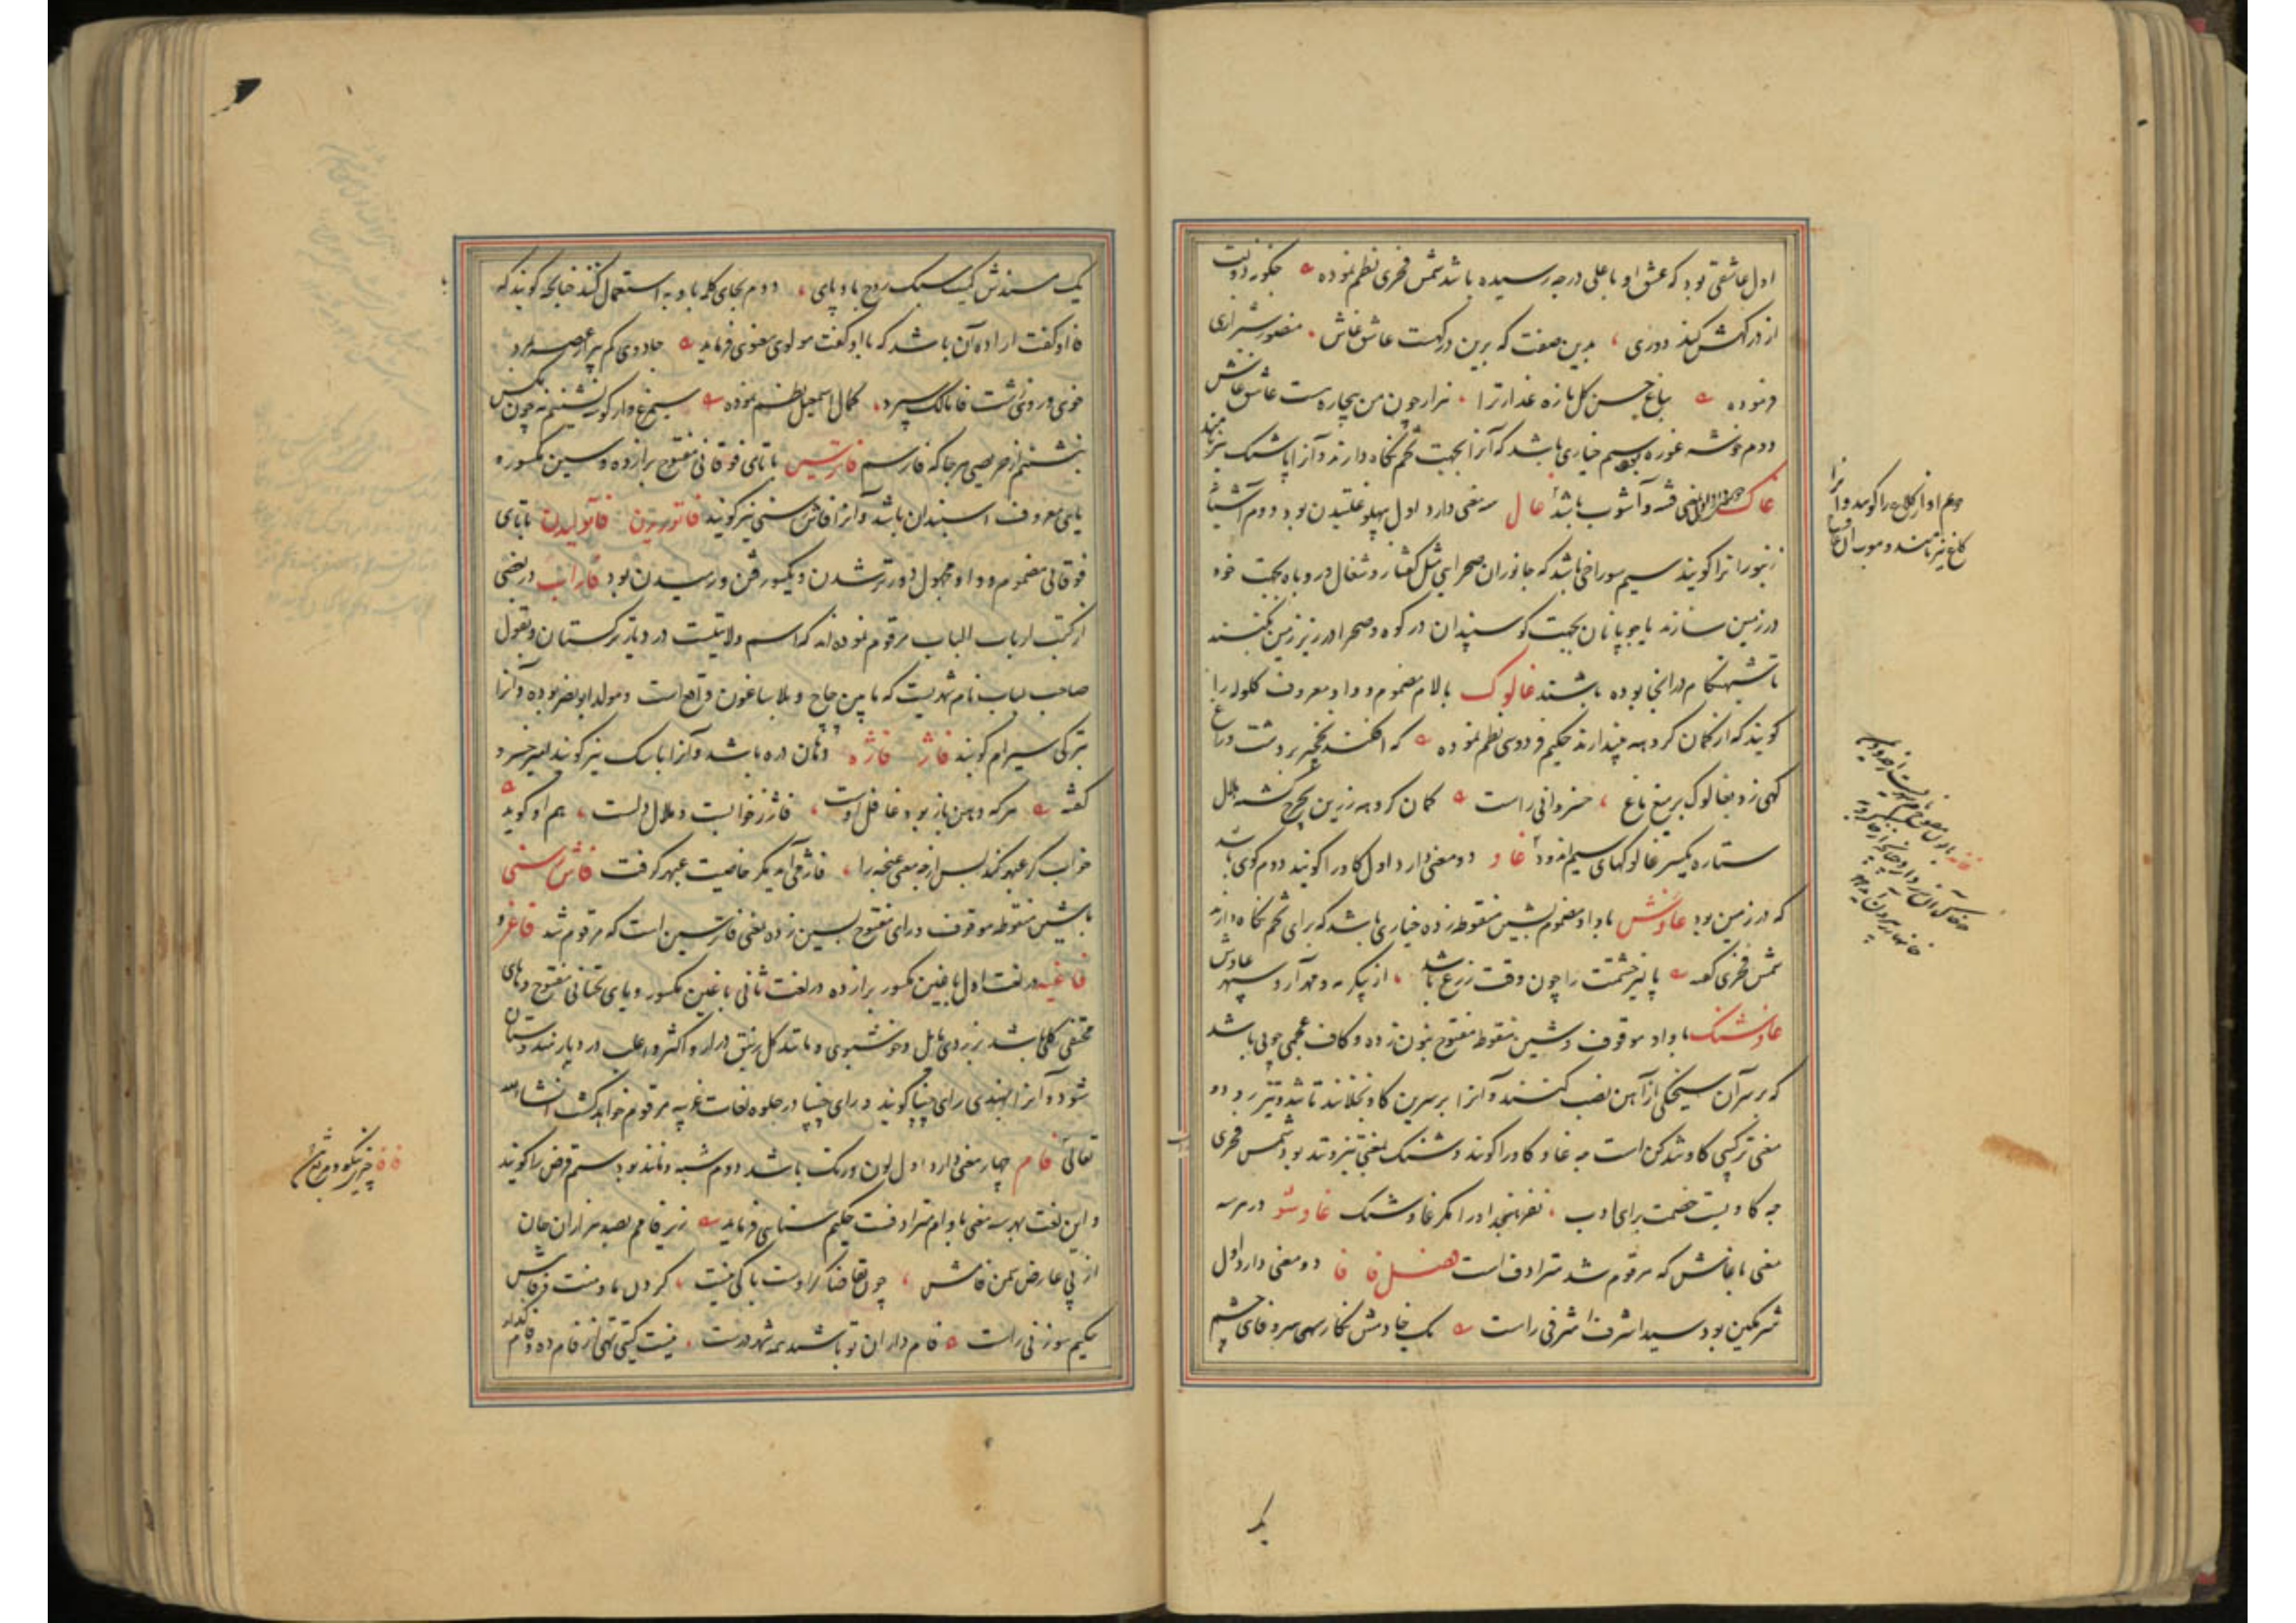 اول عاشقی بود که عشق او باعلی درجه رسیده باشد شمس فخری نظم نموده چگونه دولت
از درگهش کند دوری بدین صفت که برین درگهست عاشق غاش منصور شیرازی
فرموده بباغ حسن گل تازه عذار ترا هزار چون من بیچاره هست عاشق غاش
دوم خوشه غوره سیم خیاری باشد که آنرا بجهت تخم نگاه دارند و آنرا پاشنگ نیز نامند
غاک بمعنی فتنه و آشوب باشد غال سه معنی دارد اول بپهلو غلتیدن بود دوم آشیان
زنبور را نیز گویند سیم سوراخی باشد که جانوران صحرایی مثل کفتار و شغال و روباه بجهت خود
در زمین سازند یا چوپانان بجهت گوسپندان در کوه و صحرا در زیر زمین بکنند
تا شبهنگام در انجا بوده باشند غالوک بالام مضموم و واو معروف گلوله را
گویند که از کمان گروهه بیندازند حکیم فردوسی نظم نموده که افکند نخچیر بر دشت و راغ
گهی زد بغالوک بر میغ ماغ خسروانی راست کمان گروهه زرین بچرخ گشته هلال
ستاره یکسر غالوکهای سیم اندود غاو دو معنی دارد اول گاو را گویند دوم گوی باشد
که در زمین بود غاوش باواو مضموم بشین منقوطه زده خیاری باشد که برای تخم نگاه دارند
شمس فخری گفته پالیز حشمت را چون وقت زرع باشد از پیکر مه و مهر آرد سپهر غاوش
غاوشنگ باواو موقوف و شین منقوطه مفتوح بنون زده و کاف عجمی چوبی باشد
که بر سر آن سیخکی از آهن نصب کنند و آنرا بر سرین گاو بخلانند تا تند و تیز رود و
معنی ترکیبی گاو تند کن است چه غاو گاو را گویند و شنگ بمعنی تیز و تند بود شمس فخری
چه گاویست خصمت برای ادب نفرنجد او را مگر غاوشنگ غاوشو در هر سه
معنی باغاش که مرقوم شد مترادف است فصل فا فا دو معنی دارد اول
شرمگین بود سید اشرف اشرفی راست یک خادمش نگار سهی سرو فای چشم
یک
یک سندش کیت سبک روح باد پای دوم بجای کلمه با و به استعمال کنند چنانچه گویند که
فا او گفت اراده آن باشد که با او گفت مولوی معنوی فرماید جادوی کم پیر از غصه مرد
خوی و روی زشت فا مالک سپرد کمال اسمعیل نظم نموده سیمرغ وار گوشه نشینم نه چون مگس
بنشستم از حریصی هر جا که فا رسم فاترسین با تای فوقانی مفتوح برازده و سین مکسور و
یای معروف اسپندان باشد و آنرا فاش رسنی نیز گویند فاتوریدن فاتولیدن با تای
فوقانی مضموم و واو مجهول دورتر شدن و یکسو رفتن و رمیدن بود فاراب در بعضی
از کتب ارباب الباب مرقوم نموده اند که اسم ولایتیست در دیار ترکستان و بقول
صاحب لباب نام شهریست که مابین چاچ و بلاساغون واقع است و مولد ابونصر بوده و آنرا
بترکی سیرام گویند فاژ فاژه دهان دره باشد و آنرا باسک نیز گویند امیرخسرو
گفته هر که دهن باز بود غافل اوست فاژ ز خوابست و ملال دلست هم او گوید
خواب گر عبهر کند پس از چه معنی غنچه را فاژ می آید مگر خاصیت عبهر گرفت فاش رسنی
باشین منقوطه موقوف و رای مفتوح بسین زده بمعنی فاترسین است که مرقوم شد فاغر و
فاغیه در لغت اول باغین مکسور برازده و در لغت ثانی باغین مکسور و یای تحتانی مفتوح و های
مختفی گلی باشد زردی مایل و خوشبوی و مانند گل زنبق دراز و اکثر و اغلب در دیار هندوستان
شود و آنرا بهندی رای چنپا گویند و رای چنپا در جلوه لغات غریبه مرقوم خواهد گشت انشاالله
تعالی فام چهار معنی دارد اول لون و رنگ باشد دوم شبه و مانند بود سیم قرض را گویند
و این لغت بهر سه معنی باوام مترادفست حکیم سنائی فرماید زیر فامم بصد هزاران جان
از پی عارض سمن فامش چون تقاضاگر اوست باکی نیست گر دل ما و منت فرجامش
حکیم سوزنی راست فام داران تو باشند همه شهر درست نیست گیتی تهی از فام ده و فام گذار